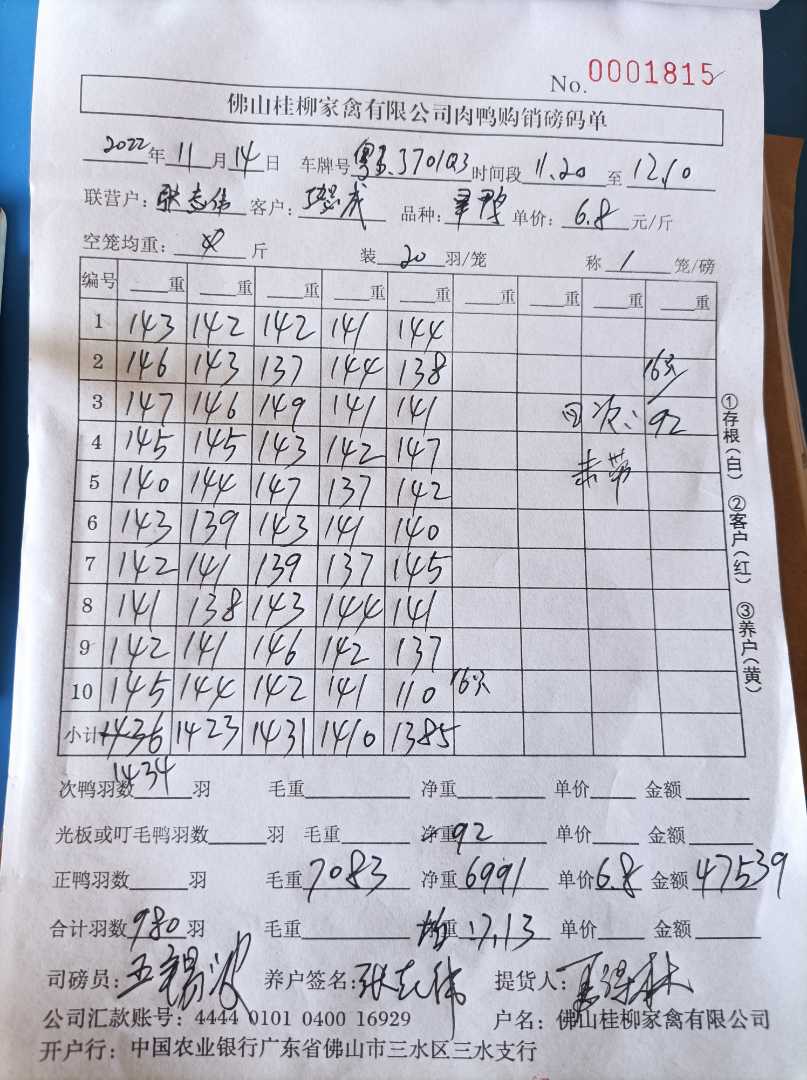 No. 0001815
佛山桂柳家禽有限公司肉鸭购销磅码单
2022年11月14日 车牌号 粤 3701Q3 时间段 11.20 至 12.10
联营户：张志伟 客户： 品种： 单价：6.8 元/斤
空笼均重： 斤 装 20 羽/笼 称 1 笼/磅
编号 重 重 重 重 重 重 重 重 重
1 143 142 142 141 144
2 146 143 137 144 138 16只
3 147 146 149 141 141 次：92
4 145 145 143 142 147 未带
5 140 144 147 137 142
6 143 139 143 141 140
7 142 141 139 137 145
8 141 138 143 144 141
9 142 141 146 142 137
10 145 144 142 141 110 16只
小计 1436 1423 1431 1410 1385
1434
次鸭羽数 羽 毛重 净重 单价 金额
光板或叮毛鸭羽数 羽 毛重 净重 92 单价 金额
正鸭羽数 羽 毛重 7083 净重 6991 单价 6.8 金额 47539
合计羽数 980 羽 毛重 均重：7.13 单价 金额
司磅员： 养户签名：张志伟 提货人：
公司汇款账号：4444 0101 0400 16929 户名：佛山桂柳家禽有限公司
开户行：中国农业银行广东省佛山市三水区三水支行
①存根（白） ②客户（红） ③养户（黄）